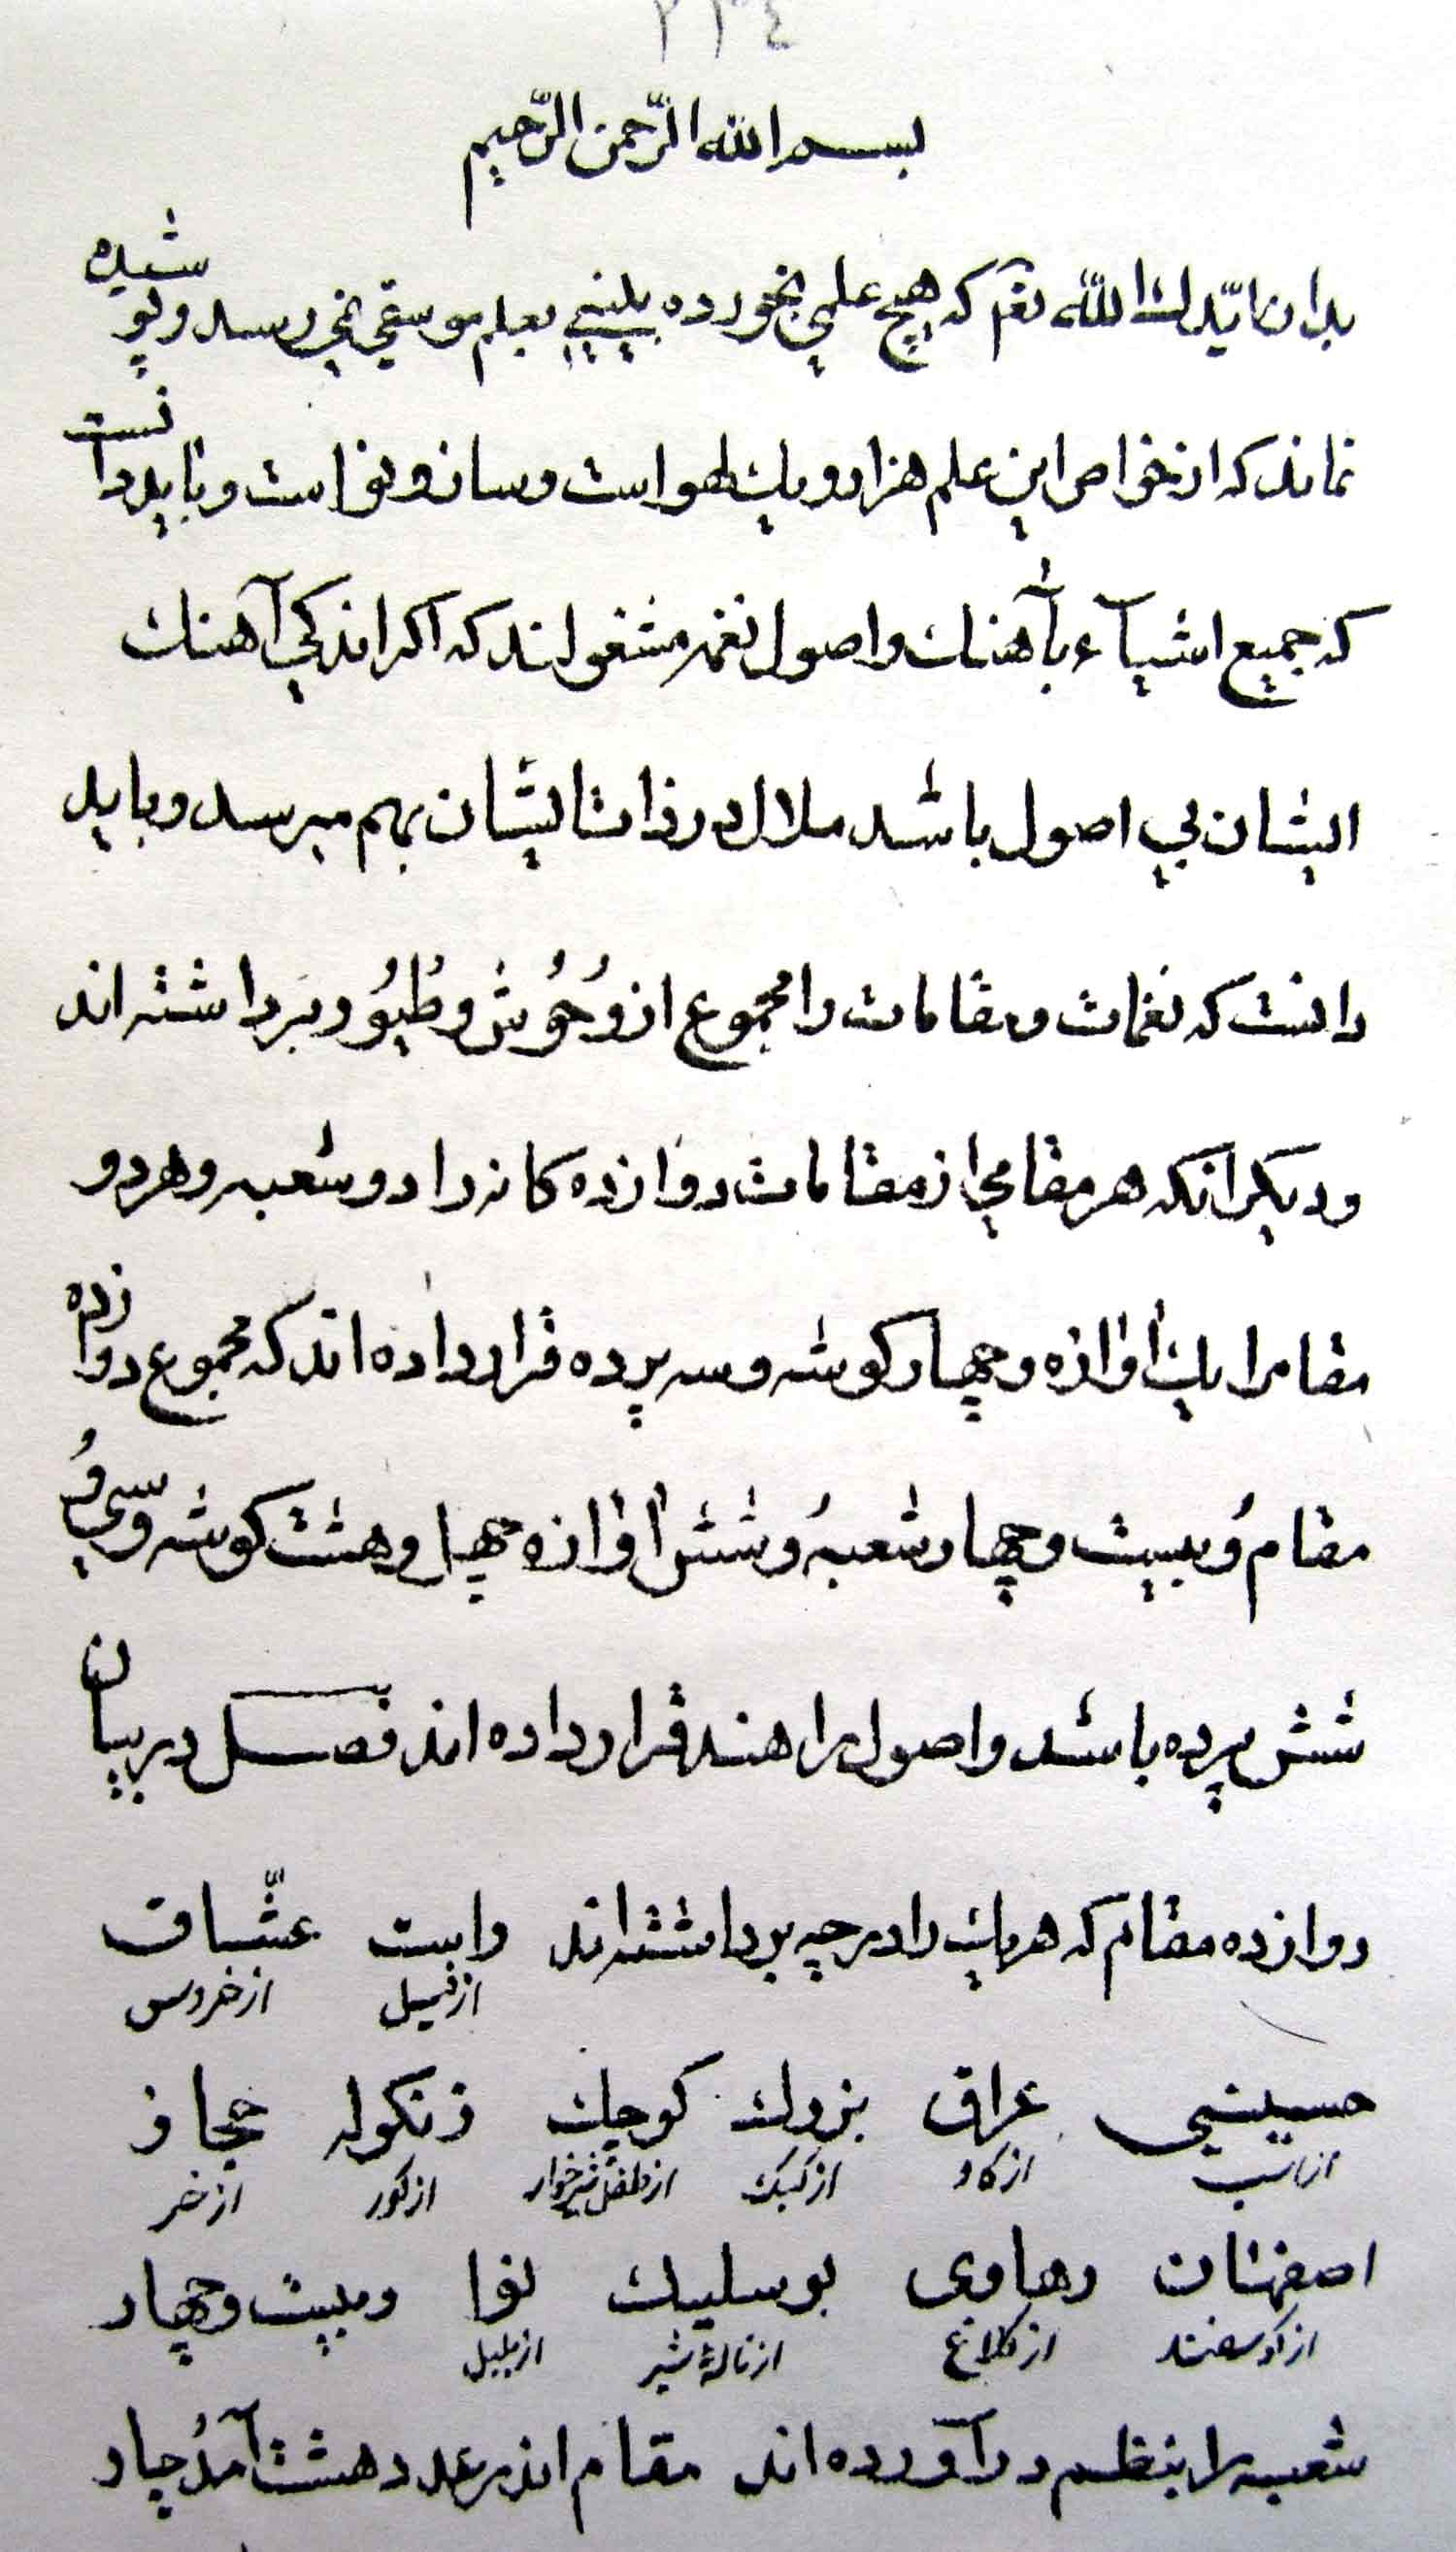 بسم الله الرّحمن الرّحیم
بدان ایّدك الله که هیچ علمی بخورده بینیی بعلم موسقی نمی رسد وپوشیده
نماند که از خواص این علم هزار و یك است وساز و نواست و باید دانست
که جمیع اشیآء بآهنك واصول نغمه مشغولند که اکر اندکی آهنك
ایشان بی اصول باشد ملال در ذات ایشان بهم میرسد و باید
دانست که نغمات ومقامات را مجموع از وُحُوش و طُیُور برداشته اند
ودیکر انکه هر مقامی از مقامات دوازده کانه را دو شعبه وهر دو
مقام را یك اوازه وچهار کوشه وسه پرده قرار داده اند که مجموع دوازده
مقام وُ بیست وچهار شعبه وُ شش اوازه چهل وهشت کوشه وسی وُ
شش پرده باشد واصول را هفده قرار داده اند فصل در بیان
دوازده مقام که هریك را از چه برداشته اند راست عشّاق
از فیل از خروس
حسینی عراق بزرك کوچك زنکوله حجاز
از اسب از کاو از کبک از طفل شیرخوار از خر
اصفهان رهاوی بوسلیك نوا وبیست وچهار
از کوسفند از کلاغ از نالهٔ شیر از بلبل
شعبه را بنظم درآورده اند مقام اندر عدد هشت آمدُ چار